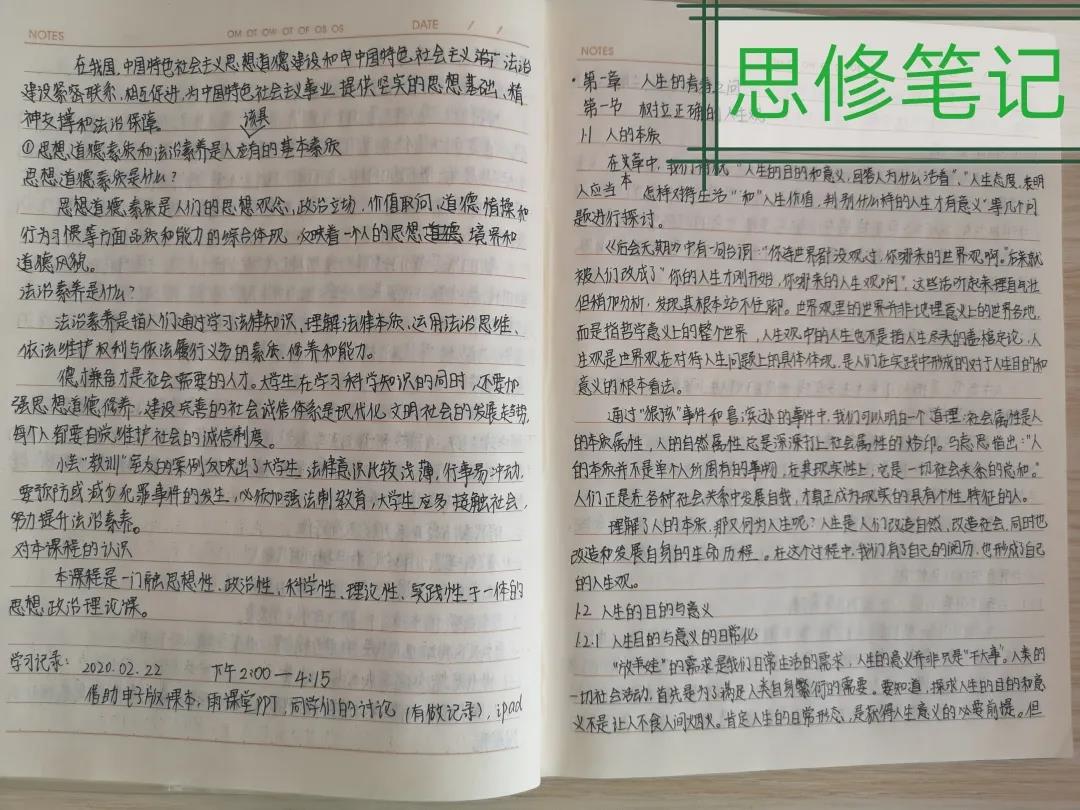 思修笔记
NOTES
DATE / /
在我国,中国特色社会主义思想道德建设和中国特色社会主义法治
建设紧密联系,相互促进,为中国特色社会主义事业提供坚实的思想基础、精
神支撑和法治保障。
该具
①思想道德素质和法治素养是人应有的基本素质
思想道德素质是什么?
思想道德素质是人们的思想观念、政治立场、价值取向、道德情操和
行为习惯等方面品质和能力的综合体现,反映着一个人的思想境界和
道德风貌。
法治素养是什么?
法治素养是指人们通过学习法律知识、理解法律本质、运用法治思维、
依法维护权利与依法履行义务的素质、修养和能力。
德才兼备才是社会需要的人才。大学生在学习科学知识的同时,还要加
强思想道德修养,建设完善的社会诚信体系是现代化文明社会的发展走势,
每个人都要自觉维护社会的诚信制度。
小袁“教训”室友的案例反映出了大学生法律意识比较浅薄,行事易冲动,
要预防或减少犯罪事件的发生,必须加强法制教育,大学生应多接触社会,
努力提升法治素养。
对本课程的认识
本课程是一门融思想性、政治性、科学性、理论性、实践性于一体的
思想政治理论课。
学习记录: 2020.02.22 下午2:00—4:15
借助电子版课本,雨课堂PPT,同学们的讨论(有做记录),ipad
NOTES
·第一章 人生的青春之问
第一节 树立正确的人生观
1.1 人的本质
在文章中,我们将就“人生的目的和意义,回答人为什么活着”、“人生态度,表明
人应当怎样对待生活”“和”人生价值,判别什么样的人生才有意义”等几个问
本
题进行探讨。
《后会无期》中有一句台词:“你连世界都没观过,你哪来的世界观啊。”后来就
被人们改成了“你的人生才刚开始,你哪来的人生观啊”。这些话听起来理直气壮
但稍加分析,发现其根本站不住脚。世界观里的世界并非地理意义上的世界各地,
而是指哲学意义上的整个世界,人生观中的人生也不是指人生尽头的盖棺定论,人
生观是世界观在对待人生问题上的具体体现,是人们在实践中形成的对于人生目的和
意义的根本看法。
通过“狼孩”事件和鲁滨逊的事件中,我们可以明白一个道理:社会属性是人
的本质属性,人的自然属性也是深深打上社会属性的烙印。马克思指出:“人
的本质并不是单个人所固有的事物,在其现实性上,它是一切社会关系的总和。”
人们正是在各种社会关系中发展自我,才真正成为现实的具有个性特征的人。
理解了人的本质,那又何为人生呢?人生是人们改造自然、改造社会,同时也
改造和发展自身的生命历程。在这个过程中,我们有了自己的阅历,也形成了自己
的人生观。
1.2 人生的目的与意义
1.2.1 人生目的与意义的日常化
“放羊娃”的需求是我们日常生活的需求,人生的意义并非只是“干大事”。人类的
一切社会活动,首先是为了满足人类自身繁衍的需要。要知道,探求人生的目的和意
义不是让人不食人间烟火。肯定人生的日常形态,是获得人生意义的必要前提。但